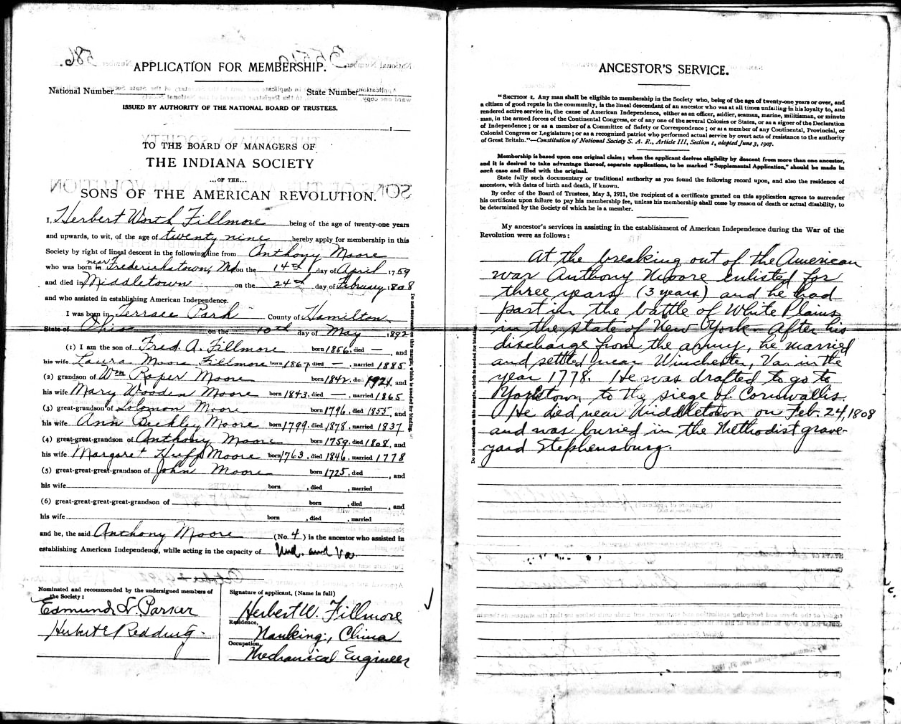 586.
APPLICATION FOR MEMBERSHIP.
National Number State Number
ISSUED BY AUTHORITY OF THE NATIONAL BOARD OF TRUSTEES.
TO THE BOARD OF MANAGERS OF
THE INDIANA SOCIETY
...OF THE...
SONS OF THE AMERICAN REVOLUTION.
I, Herbert Worth Fillmore being of the age of twenty-one years
and upwards, to wit, of the age of twenty nine hereby apply for membership in this
Society by right of lineal descent in the following line from Anthony Moore
who was born in near Frederickstown, Md on the 14th day of April 1759
and died in Middletown on the 24th day of February 1808
and who assisted in establishing American Independence.
I was born in Terrace Park County of Hamilton
State of Ohio on the 10th day of May, 1892
(1) I am the son of Fred A. Fillmore born 1856, died —, and
his wife Laura Moore Fillmore born 1867, died —, married 1885
(2) grandson of Wm Roper Moore born 1842, died 1921, and
his wife Mary Wooden Moore born 1843, died —, married 1865
(3) great-grandson of Solomon Moore born 1796, died 1855, and
his wife Ann Beckley Moore born 1799, died 1878, married 1837
(4) great-great-grandson of Anthony Moore born 1759, died 1808, and
his wife Margaret Huff Moore born 1763, died 1846, married 1778
(5) great-great-great-grandson of John Moore born 1725, died , and
his wife born , died , married
(6) great-great-great-great-grandson of born , died , and
his wife born , died , married
and he, the said Anthony Moore (No. 4) is the ancestor who assisted in
establishing American Independence, while acting in the capacity of and Va
Nominated and recommended by the undersigned members of
the Society:
Edmund L. Parker
Herbert Redding
Signature of applicant, (Name in full)
Herbert W. Fillmore
Residence,
Nanking, China
Occupation,
Mechanical Engineer
ANCESTOR'S SERVICE.
"SECTION 1. Any man shall be eligible to membership in the Society who, being of the age of twenty-one years or over, and
a citizen of good repute in the community, is the lineal descendant of an ancestor who was at all times unfailing in his loyalty to, and
rendered active service in, the cause of American Independence, either as an officer, soldier, seaman, marine, militiaman, or minute
man, in the armed forces of the Continental Congress, or of any one of the several Colonies or States, or as a signer of the Declaration
of Independence; or as a member of a Committee of Safety or Correspondence; or as a member of any Continental, Provincial, or
Colonial Congress or Legislature; or as a recognized patriot who performed actual service by overt acts of resistance to the authority
of Great Britain."—Constitution of National Society S. A. R., Article III, Section 1, adopted June 3, 1907.
Membership is based upon one original claim; when the applicant derives eligibility by descent from more than one ancestor,
and it is desired to take advantage thereof, separate applications, to be marked "Supplemental Application," should be made in
each case and filed with the original.
State fully such documentary or traditional authority as you found the following record upon, and also the residence of
ancestors, with dates of birth and death, if known.
By order of the Board of Trustees, May 3, 1911, the recipient of a certificate granted on this application agrees to surrender
his certificate upon failure to pay his membership fee, unless his membership shall cease by reason of death or actual disability, to
be determined by the Society of which he is a member.
My ancestor's services in assisting in the establishment of American Independence during the War of the
Revolution were as follows:
At the breaking out of the American
war Anthony Moore enlisted for
three years (3 years) and he had
part in the battle of White Plains
in the state of New York. After his
discharge from the army, he married
and settled near Winchester, Va. in the
year 1778. He was drafted to go to
Yorktown to the siege of Cornwallis.
He died near Middletown on Feb. 24, 1808
and was buried in the Methodist grave-
yard Stephensburg.